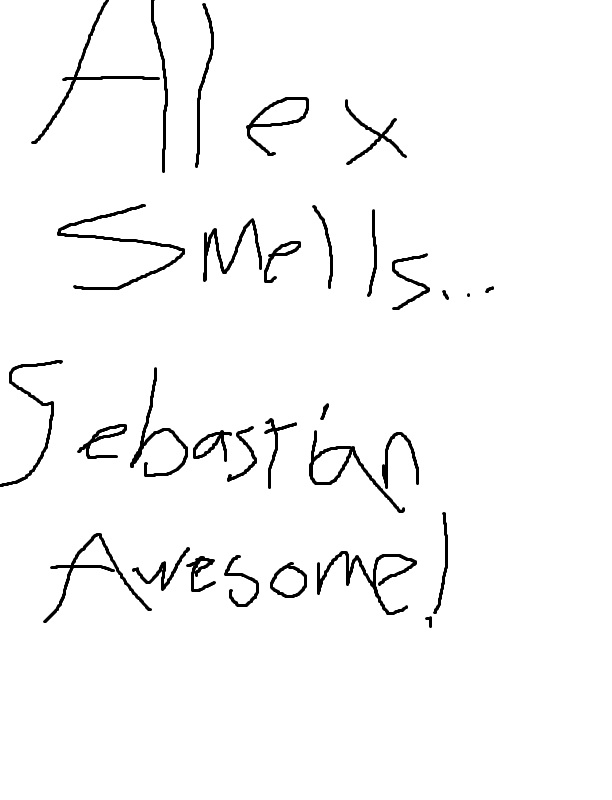 Alex
Smells...
Sebastian
Awesome!